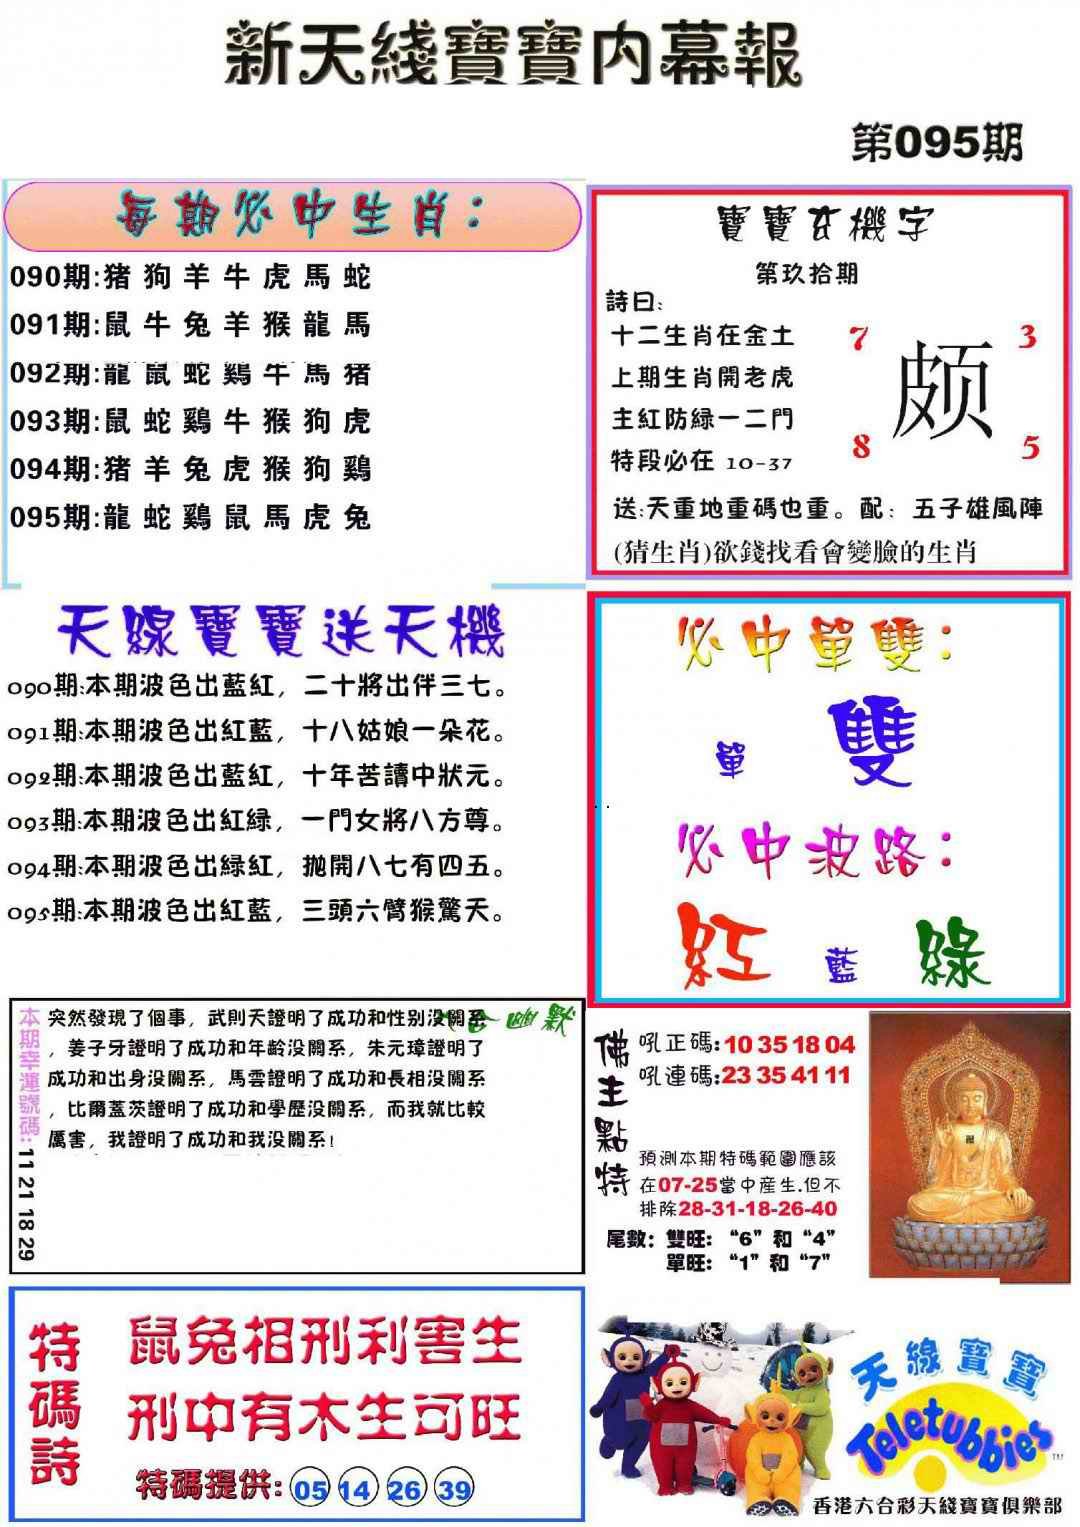 新天綫寶寶内幕報
第095期
每期必中生肖：
090期:猪狗羊牛虎馬蛇
091期:鼠牛兔羊猴龍馬
092期:龍鼠蛇鷄牛馬猪
093期:鼠蛇鷄牛猴狗虎
094期:猪羊兔虎猴狗鷄
095期:龍蛇鷄鼠馬虎兔
寶寶玄機字
第玖拾期
詩曰:
十二生肖在金土
上期生肖開老虎
主紅防緑一二門
特段必在 10-37
7 3
颇
8 5
送:天重地重碼也重。配：五子雄風陣
(猜生肖)欲錢找看會變臉的生肖
天線寶寶送天機
090期:本期波色出藍紅，二十將出伴三七。
091期:本期波色出紅藍，十八姑娘一朵花。
092期:本期波色出藍紅，十年苦讀中狀元。
093期:本期波色出紅緑，一門女將八方尊。
094期:本期波色出緑紅，抛開八七有四五。
095期:本期波色出紅藍，三頭六臂猴驚天。
必中單雙：
單 雙
必中波路：
紅 藍 綠
本期幸運號碼:11 21 18 29
幽默
突然發現了個事，武則天證明了成功和性别没關系
，姜子牙證明了成功和年龄没關系，朱元璋證明了
成功和出身没關系，馬雲證明了成功和長相没關系
，比爾蓋茨證明了成功和學歷没關系，而我就比較
厲害，我證明了成功和我没關系！
佛主點特
吼正碼:10 35 18 04
吼連碼:23 35 41 11
預測本期特碼範圍應該
在07-25當中産生.但不
排除28-31-18-26-40
尾數：雙旺：“6”和“4”
單旺：“1”和“7”
特碼詩
鼠兔相刑利害生
刑中有木生可旺
特碼提供: 05 14 26 39
天線寶寶
Teletubbies
TM
香港六合彩天綫寶寶俱樂部